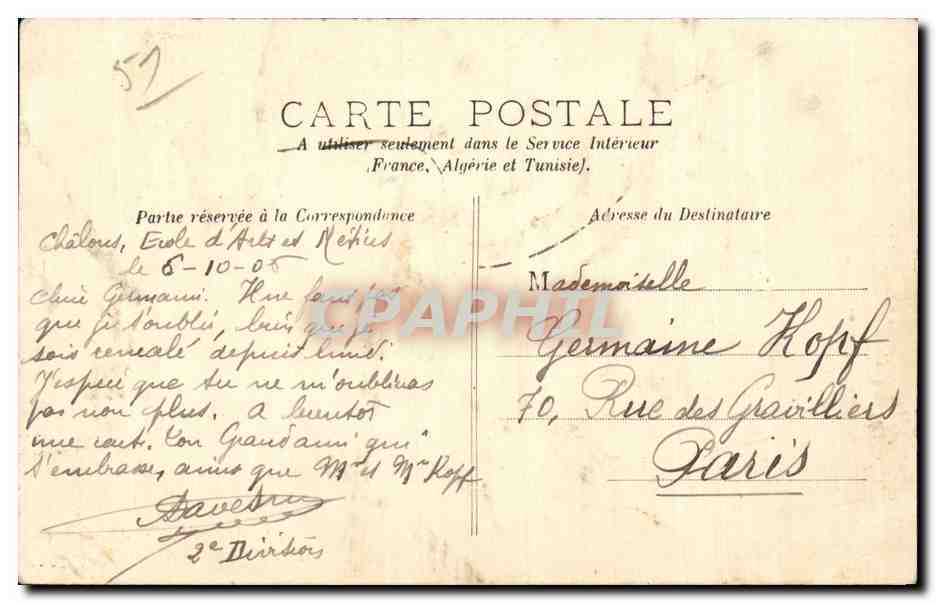 51
CARTE POSTALE
A utiliser seulement dans le Service Intérieur
(France, Algérie et Tunisie).
Partie réservée à la Correspondance
Adresse du Destinataire
Châlons, Ecole d'Arts et Métiers
le 6-10-06
Chère Germaine. Il ne faut pas
que je t'oublie, bien que je
sois depuis lundi.
J'espère que tu ne m'oublieras
pas non plus. A bientôt
une carte. Ton Grand ami qui
t'embrasse, ainsi que Mr et Mme Kopf
2e Division
Mademoiselle
Germaine Kopf
70, Rue des Gravilliers
Paris
CPAPHIL